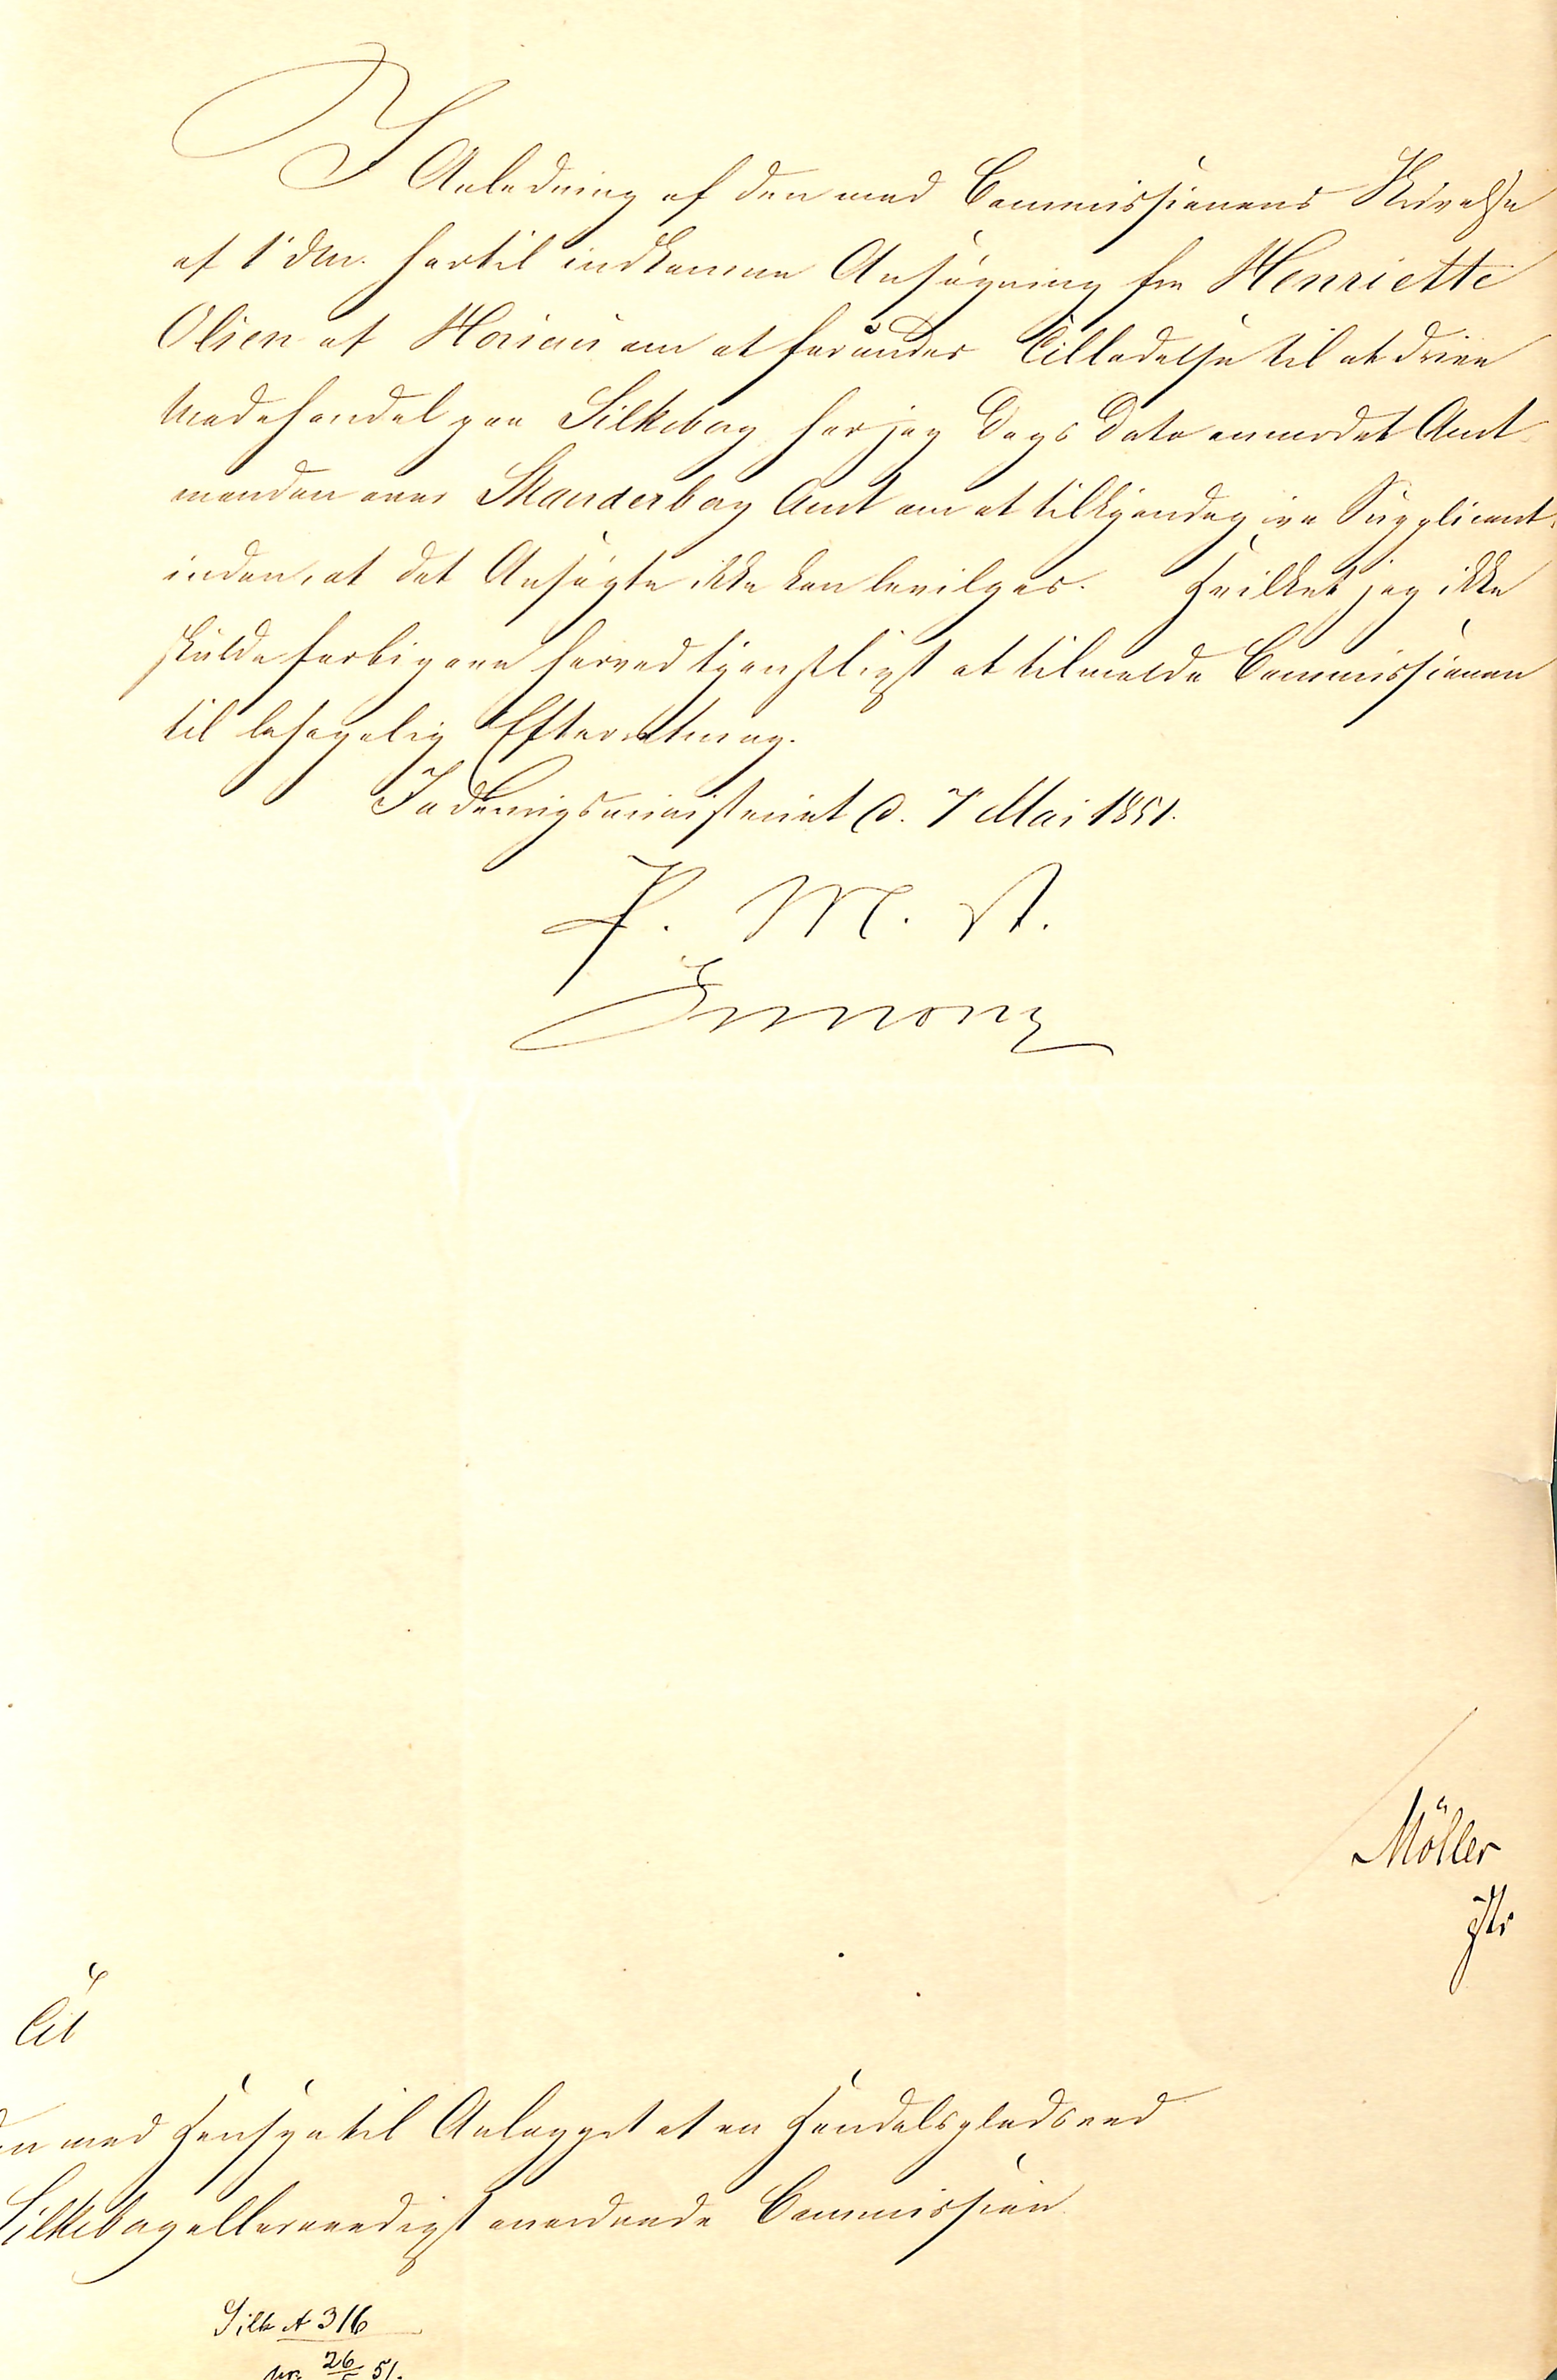 I Anledning af den med Commissionens Skrivelse
af 1' dM. hertil indkomne Ansøgning fra Henriette
Olsen af Horsens om at forundes Tilladelse til at drive
Modehandel paa Silkeborg har jeg Dags Dato anmodet Amt-
manden over Skanderborg Amt om at tilkjendegive Supplicant-
inden, at det Ansøgte ikke kan bevilges. Hvilket jeg ikke
skulde forbigaae herved tjenstligst at tilmelde Commissionen
til behagelig Efterretning.
Indenrigsministeriet d. 7 Mai 1851.
F. M. A.
Simony
Möller
Til
den med Hensyn til Anlægget af en Handelsplads ved
Silkeborg allernaadigst anordnede Commission.
Silk A 316
26 51.